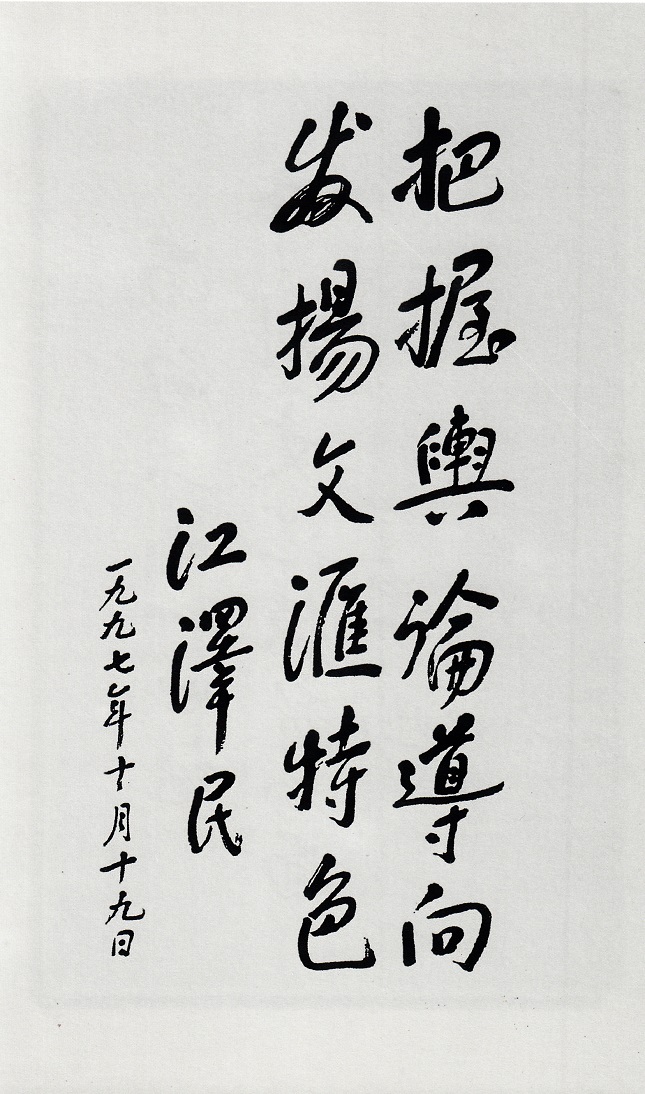 把握輿論導向
发揚文滙特色
江澤民
一九九七年十月十九日